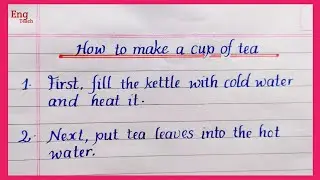 Eng
Teach
How to make a cup of tea
1. First, fill the kettle with cold water
and heat it.
2. Next, put tea leaves into the hot
water.